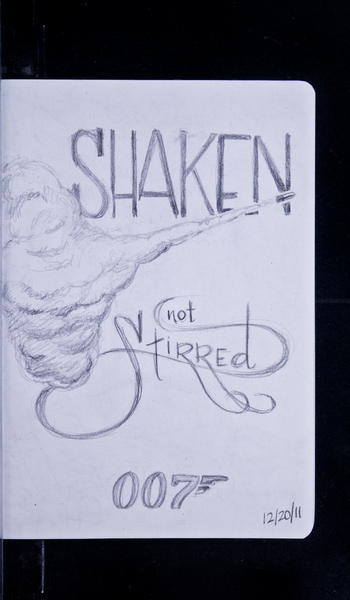 SHAKEN
not
Stirred
007
12/20/11